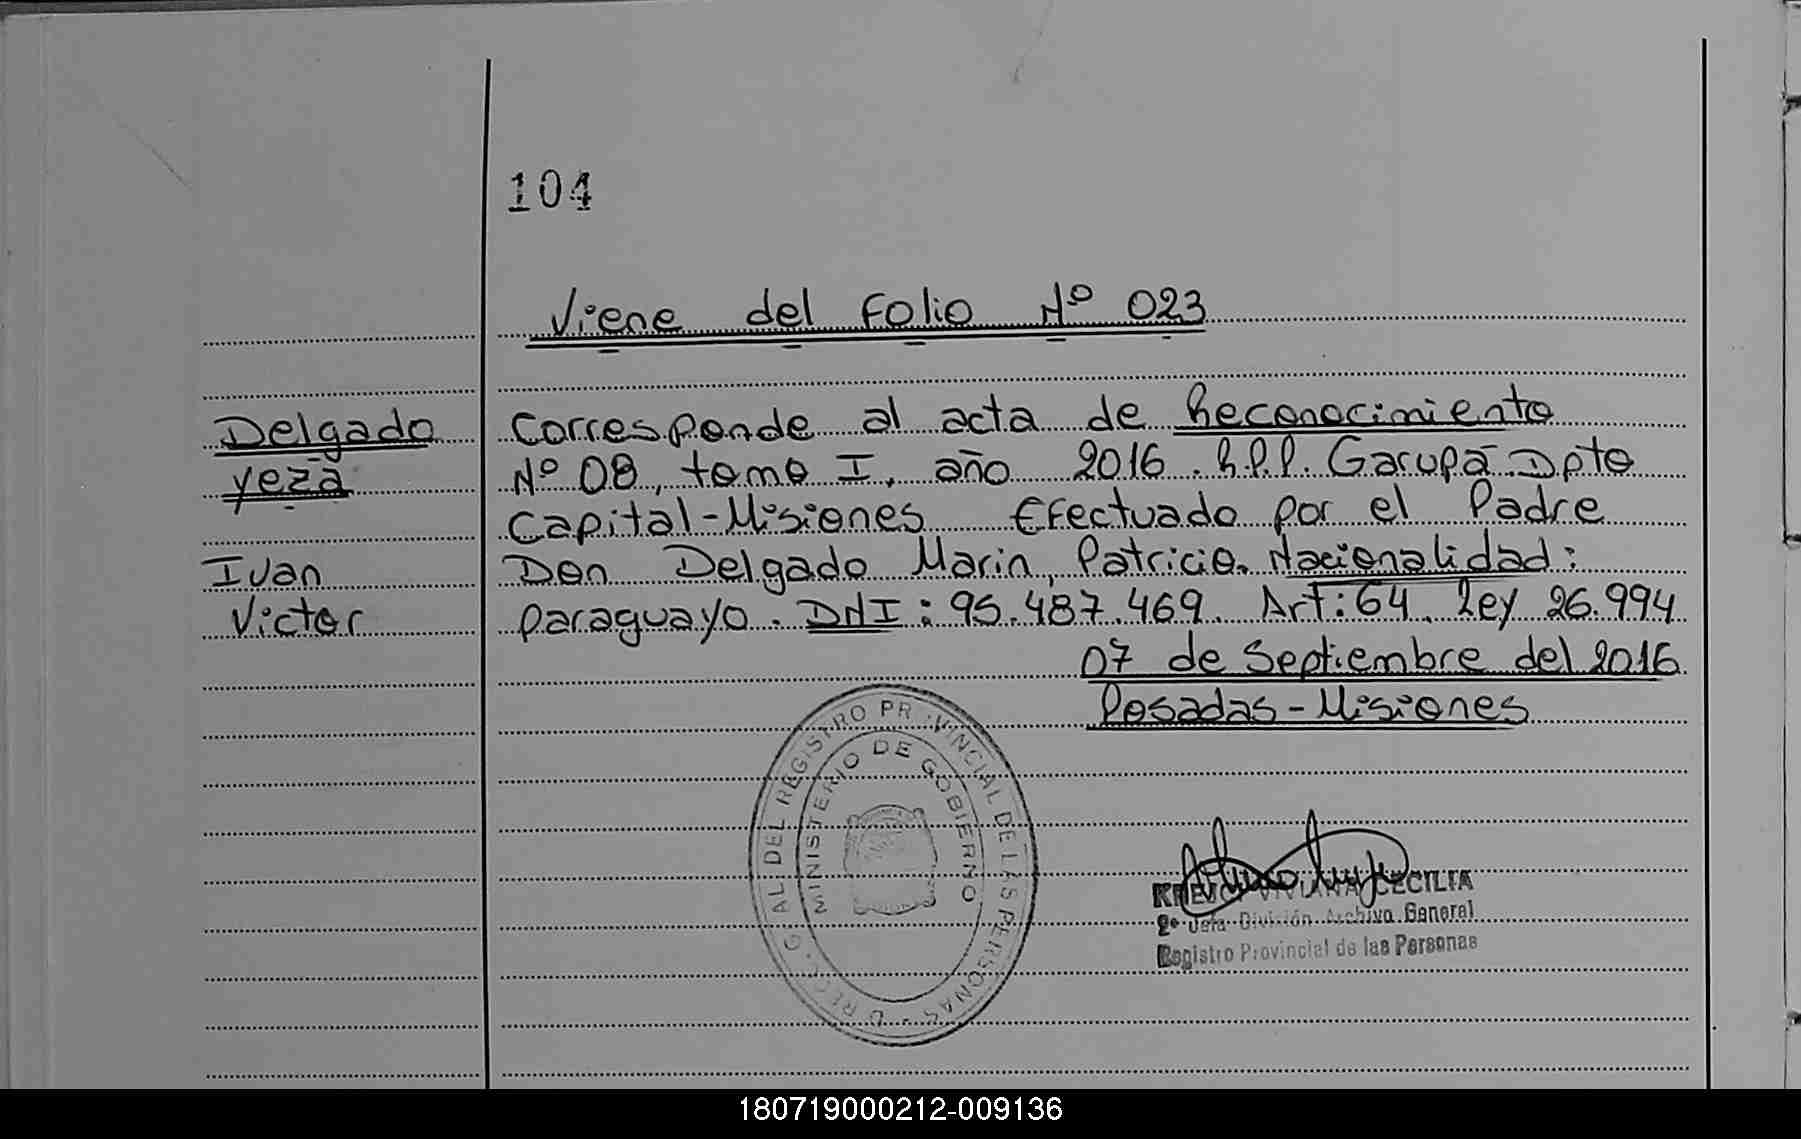 104
Viene del Folio Nº 023
Delgado
yeza
Ivan
Victor
Corresponde al acta de Reconocimiento
Nº 08, tomo I, año 2016. R.P.P. Garupá Dpto
Capital-Misiones Efectuado por el Padre
Don Delgado Marin, Patricio. Nacionalidad:
paraguayo. DNI: 95.487.469. Art: 64. Ley 26.994
07 de Septiembre del 2016
Posadas-Misiones
DIRECC. GRAL. DEL REGISTRO PROVINCIAL DE LAS PERSONAS
MINISTERIO DE GOBIERNO
VIVIANA CECILIA
2º Jefa División Archivo General
Registro Provincial de las Personas
180719000212-009136